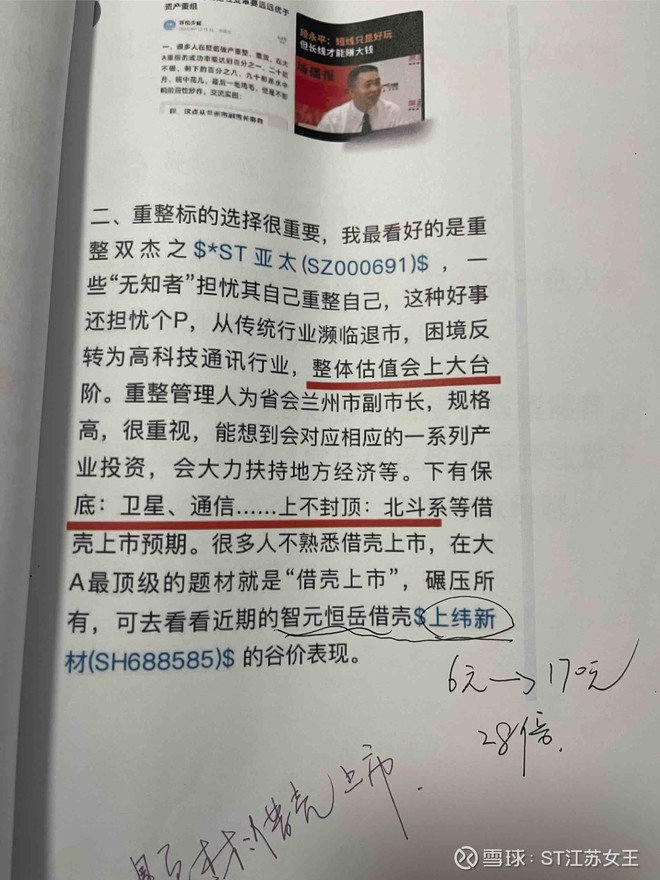 资产重组
一、很多人在贬低破产重整、重组，在大
A重组的成功率能达到百分之一、二十就
二、重整标的选择很重要，我最看好的是重
整双杰之$*ST亚太(SZ000691)$，一
些“无知者”担忧其自己重整自己，这种好事
还担忧个P，从传统行业濒临退市，困境反
转为高科技通讯行业，整体估值会上大台
阶。重整管理人为省会兰州市副市长，规格
高，很重视，能想到会对应相应的一系列产
业投资，会大力扶持地方经济等。下有保
底：卫星、通信……上不封顶：北斗系等借
壳上市预期。很多人不熟悉借壳上市，在大
A最顶级的题材就是“借壳上市”，碾压所
有，可去看看近期的智元恒岳借壳$上纬新
材(SH688585)$ 的谷价表现。
段永平：短线只是好玩
但长线才能赚大钱
6元→170元
28倍.
借壳上市.
雪球：ST江苏女王